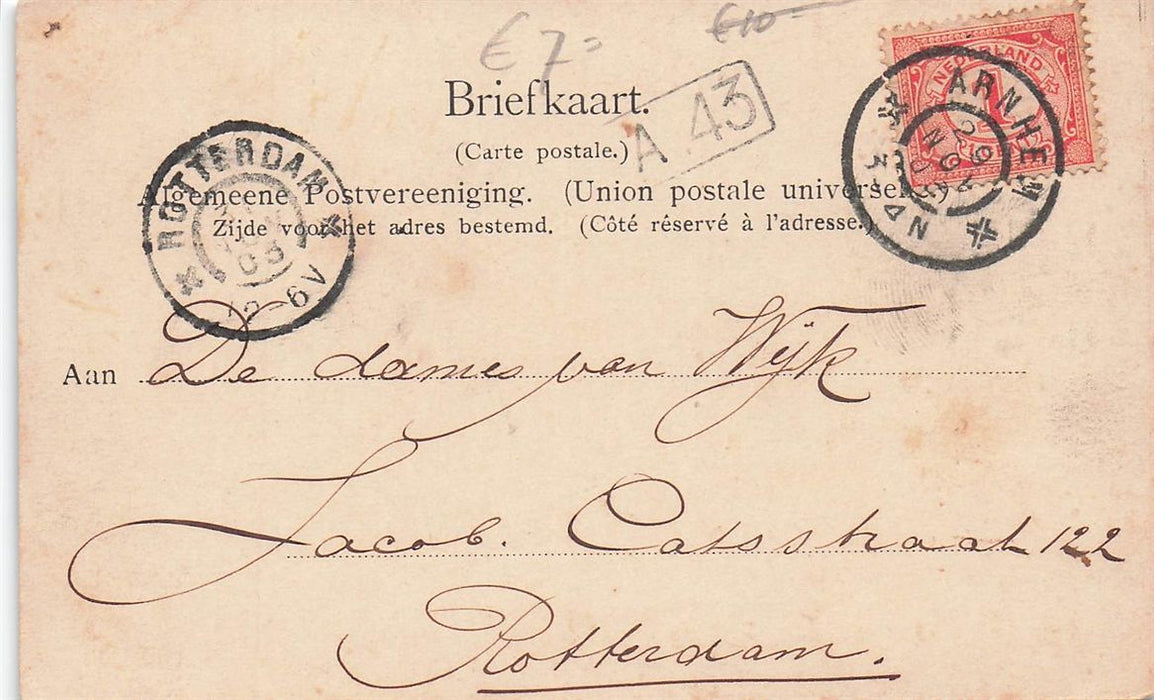 € 7= €10
Briefkaart.
A 43
(Carte postale.)
Algemeene Postvereeniging. (Union postale universelle.)
Zijde voor het adres bestemd. (Côté réservé à l'adresse.)
NEDERLAND
ARNHEM
29
NOV
3-4N
ROTTERDAM
03
12-6V
Aan De dames van Wijk
Jacob. Catsstraat 122
Rotterdam.